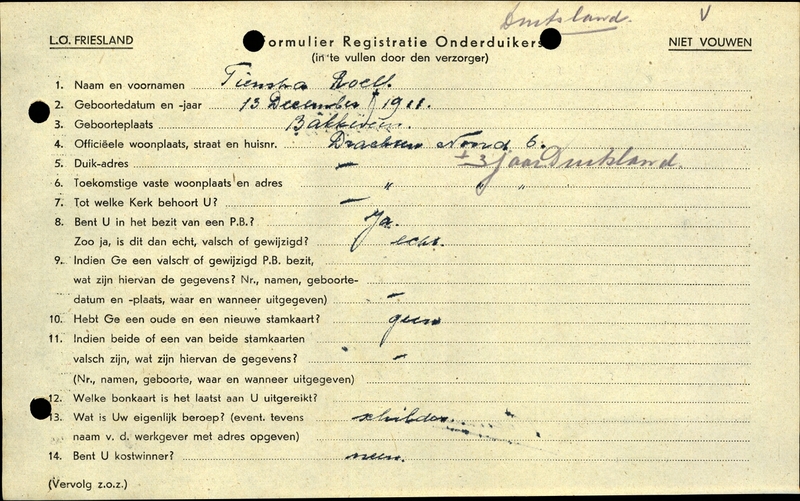 Duitsland. V
L.O. FRIESLAND Formulier Registratie Onderduikers NIET VOUWEN
(in te vullen door den verzorger)
1. Naam en voornamen Tienstra Roelf.
2. Geboortedatum en -jaar 13 December 1911.
3. Geboorteplaats Bakkeveen.
4. Officiëele woonplaats, straat en huisnr. Drachten Noord 6.
5. Duik-adres — ± 3 jaar Duitsland.
6. Toekomstige vaste woonplaats en adres " " "
7. Tot welke Kerk behoort U? —
8. Bent U in het bezit van een P.B.? Ja.
Zoo ja, is dit dan echt, valsch of gewijzigd? echt.
9. Indien Ge een valsch of gewijzigd P.B. bezit,
wat zijn hiervan de gegevens? Nr., namen, geboorte-
datum en -plaats, waar en wanneer uitgegeven) —
10. Hebt Ge een oude en een nieuwe stamkaart? geen
11. Indien beide of een van beide stamkaarten
valsch zijn, wat zijn hiervan de gegevens? —
(Nr., namen, geboorte, waar en wanneer uitgegeven)
12. Welke bonkaart is het laatst aan U uitgereikt?
13. Wat is Uw eigenlijk beroep? (event. tevens schilder.
naam v. d. werkgever met adres opgeven)
14. Bent U kostwinner? neen.
(Vervolg z.o.z.)